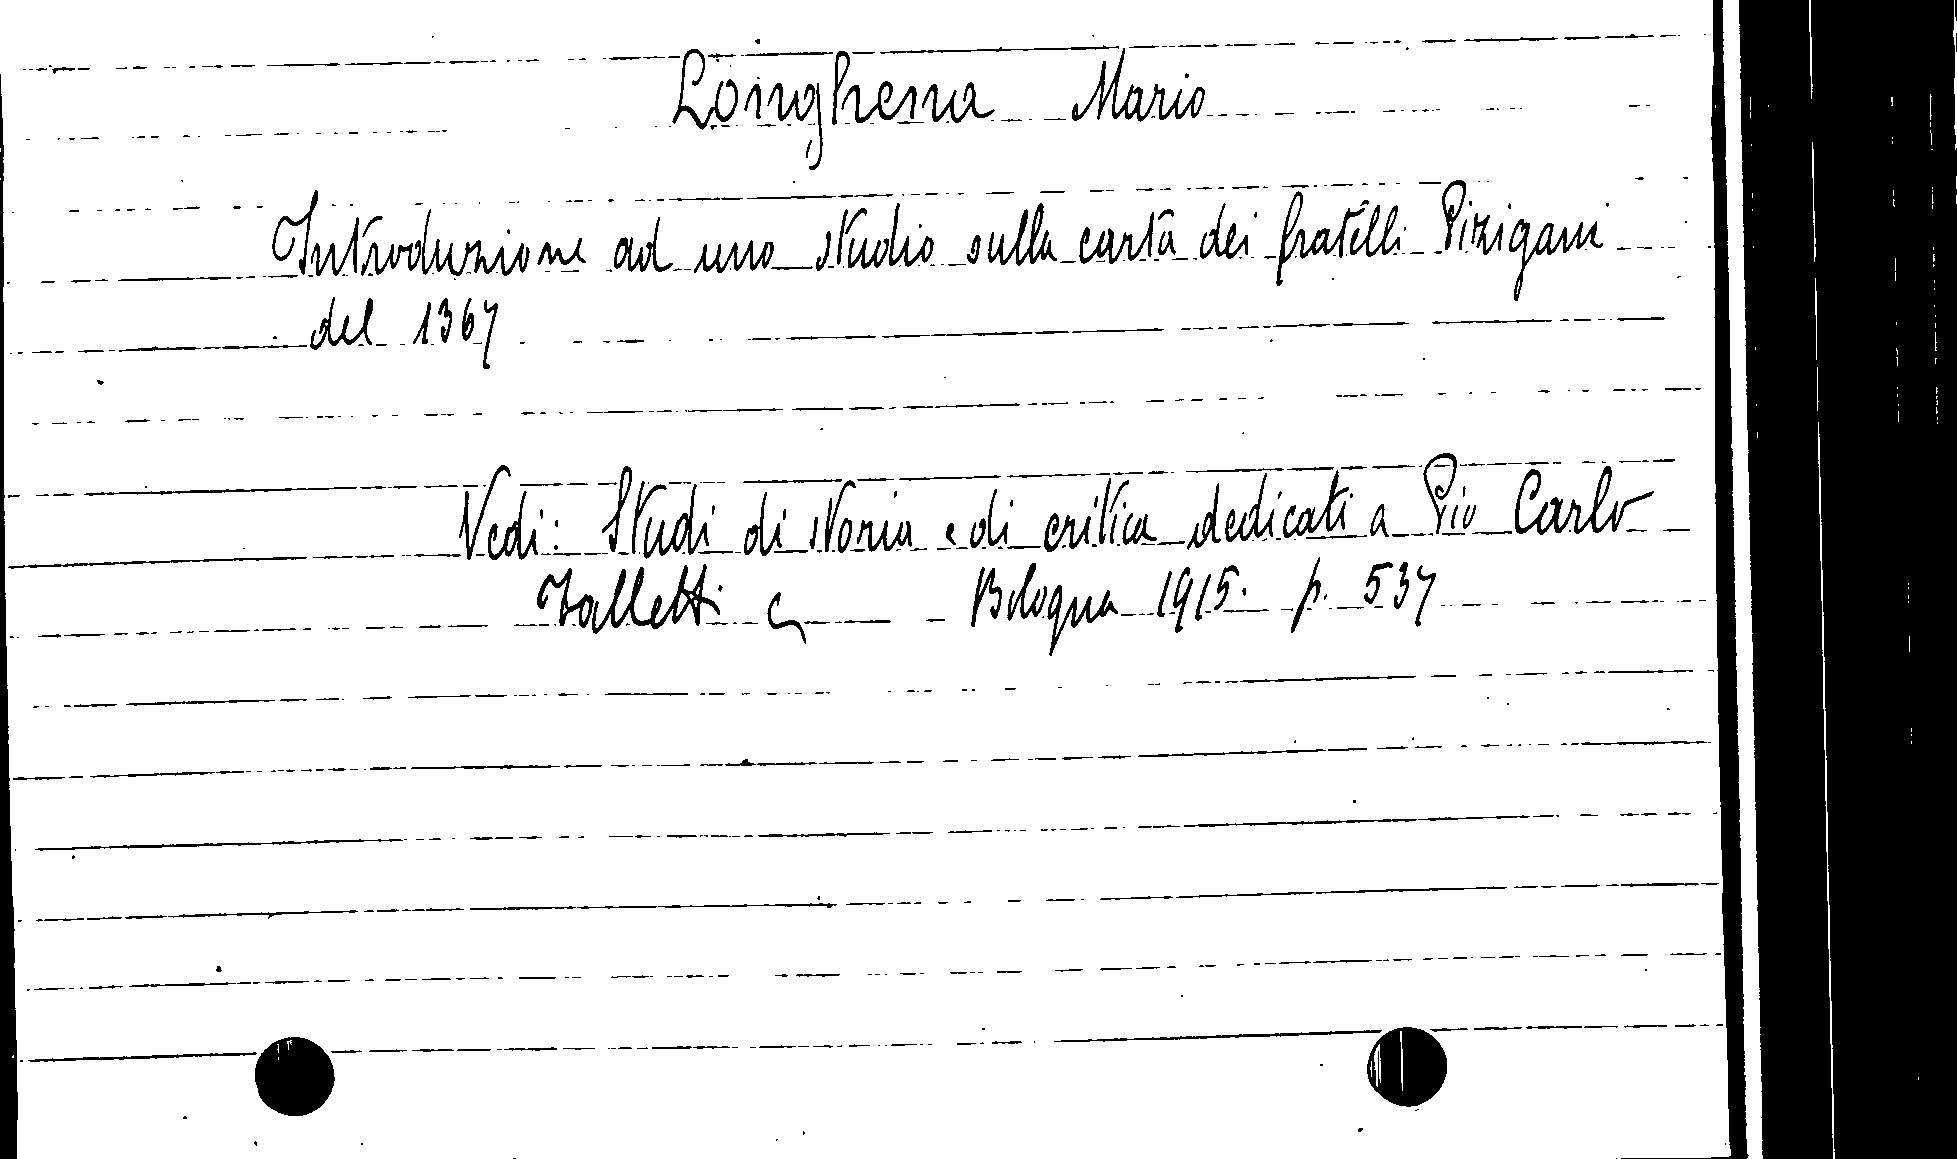 Longhena Mario
Introduzione ad uno studio sulla carta dei fratelli Pizigani
del 1367
Vedi: Studi di storia e di critica dedicati a Pio Carlo
Falletti Bologna 1915. p. 537